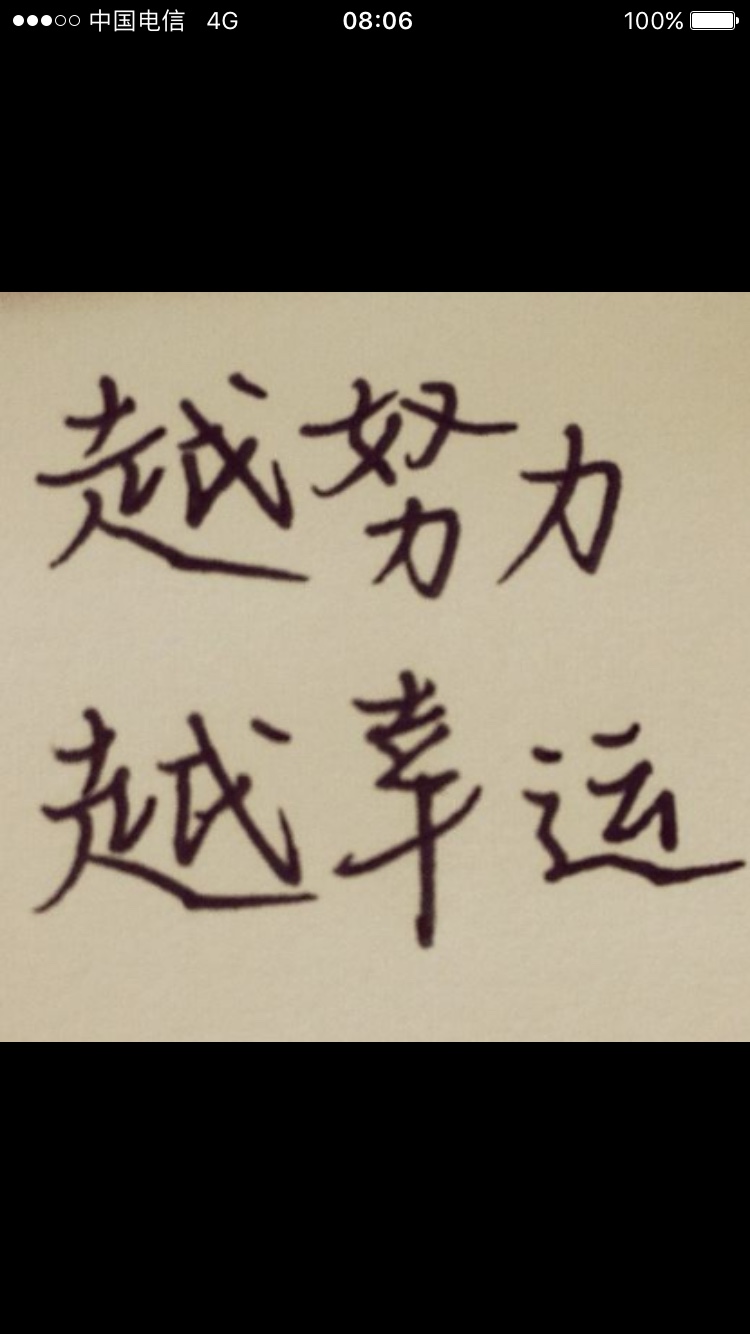 中国电信 4G 08:06 100%
越努力
越幸运